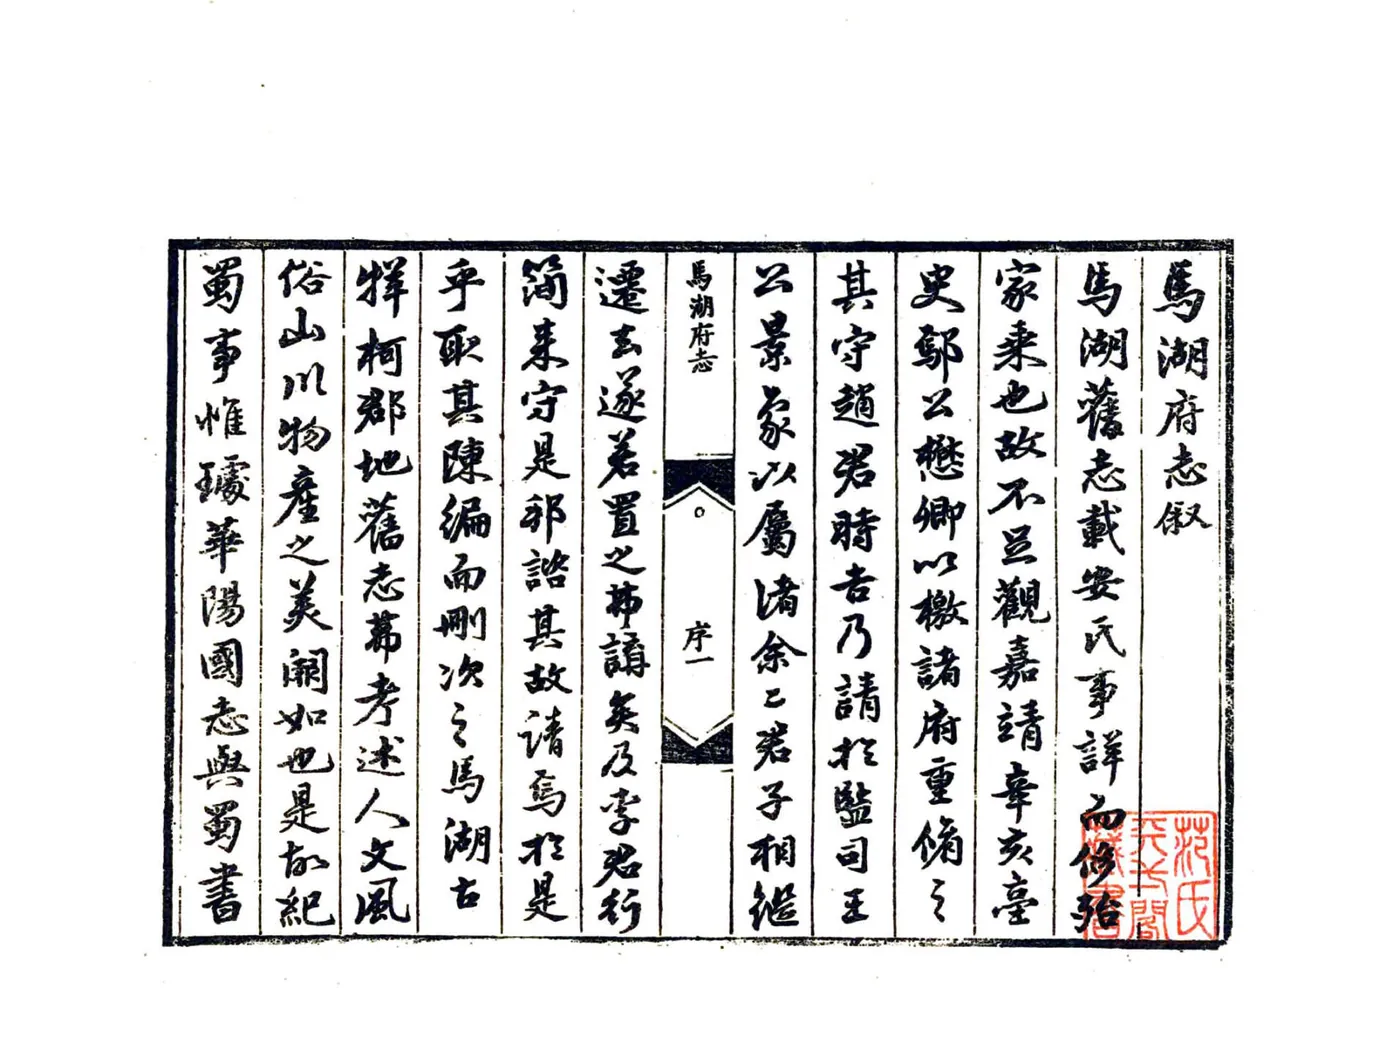 馬湖府志敘
馬湖舊志載安氏事詳而修殆
家乘也故不足觀嘉靖辛亥臺
史鄢公懋卿以檄諸府重脩之
其守趙君時吉乃請於監司王
公景象以屬諸余二君子相繼
遷去遂若置之弗講矣及李君行
簡来守是邦諮其故請焉於是
乎取其陳編而刪次之馬湖古
牂柯郡地舊志弗考述人文風
俗山川物產之美闕如也是故紀
蜀事惟璩華陽國志與蜀書
馬湖府志
序一
范氏天一閣藏書